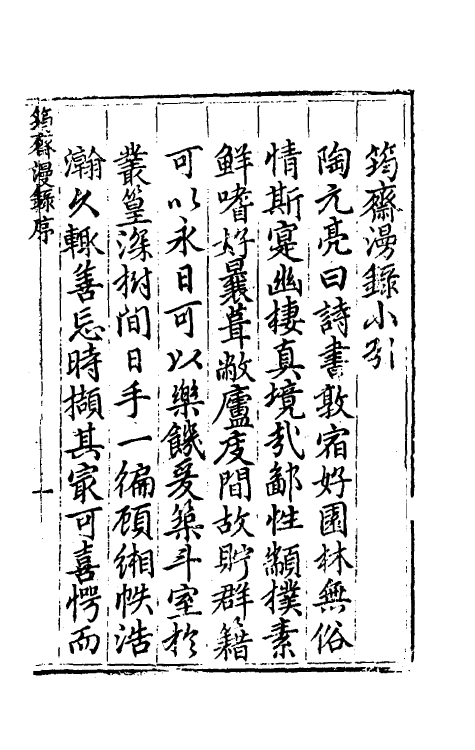 筠齋漫錄小引
陶元亮曰詩書敦宿好園林無俗
情斯寔幽棲真境哉鄙性顓樸素
鮮嗜好曩葺敝廬庋閣故貯群籍
可以永日可以樂饑爰築斗室於
叢篁深樹間日手一編顧緗帙浩
瀚久輒善忘時擷其㝡可喜愕而
筠齋漫錄序
一